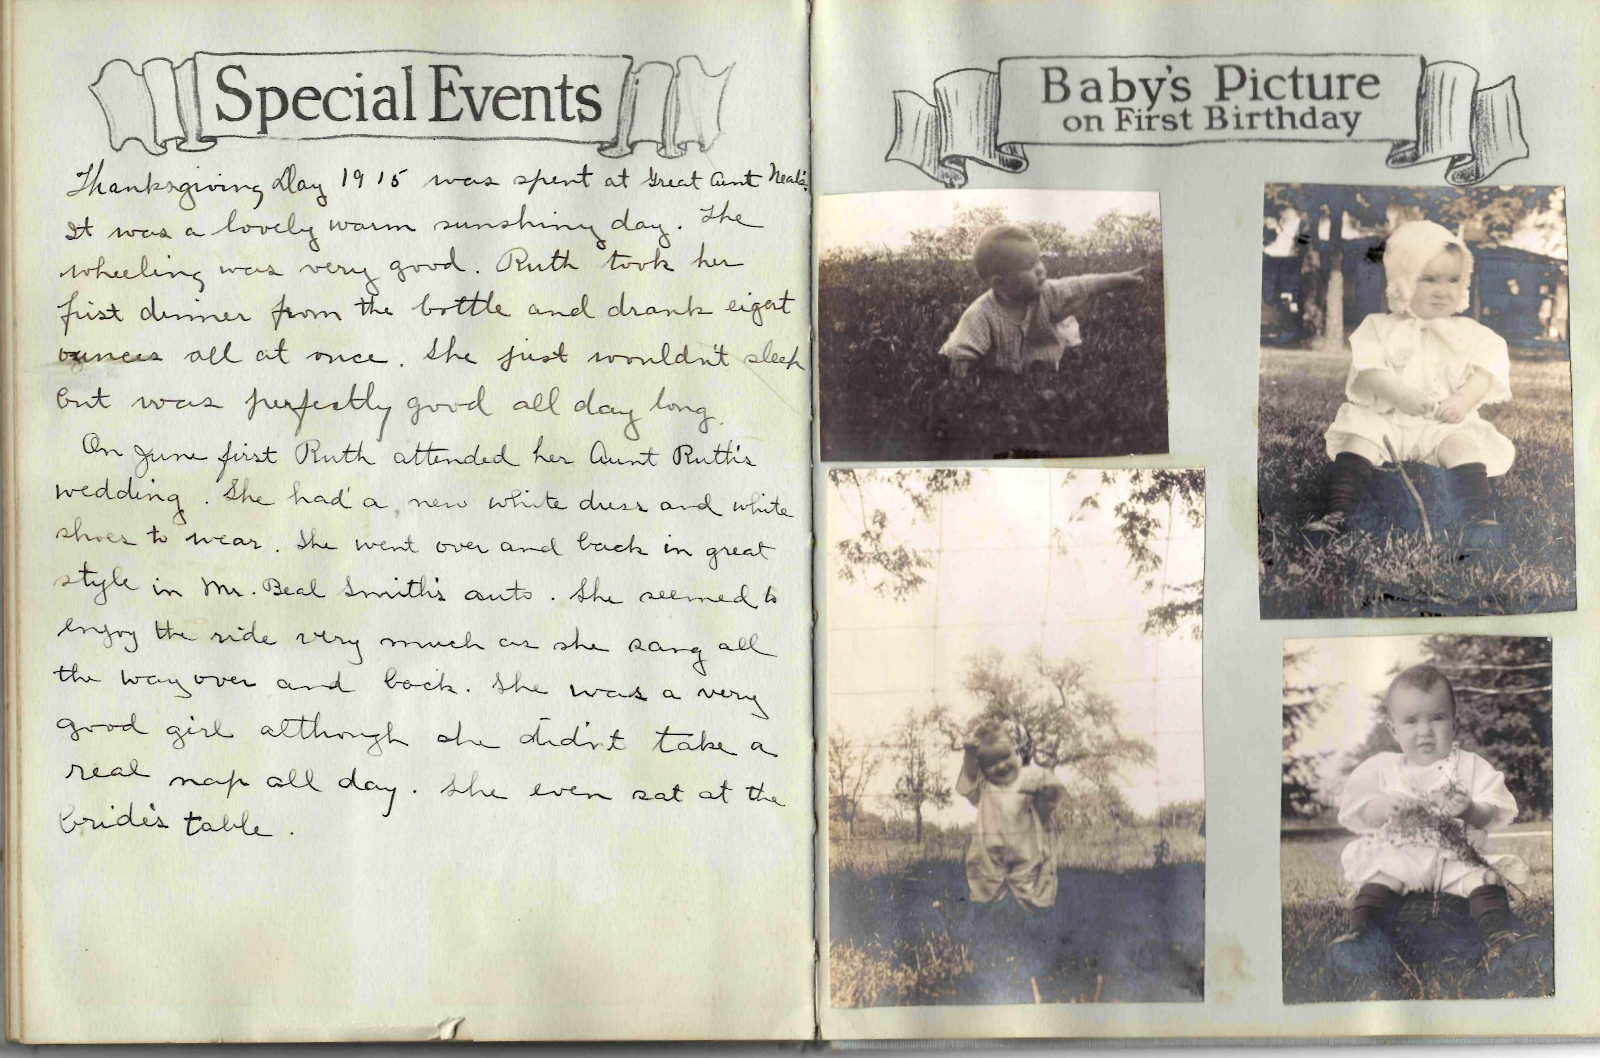 Special Events
Thanksgiving Day 1915 was spent at Great Aunt Neal's.
It was a lovely warm sunshiny day. The
wheeling was very good. Ruth took her
first dinner from the bottle and drank eight
ounces all at once. She just wouldn't sleep
but was perfectly good all day long.
On June first Ruth attended her Aunt Ruth's
wedding. She had a new white dress and white
shoes to wear. She went over and back in great
style in Mr. Beal Smith's auto. She seemed to
enjoy the ride very much as she sang all
the way over and back. She was a very
good girl although she didn't take a
real nap all day. She even sat at the
bride's table.
Baby's Picture
on First Birthday